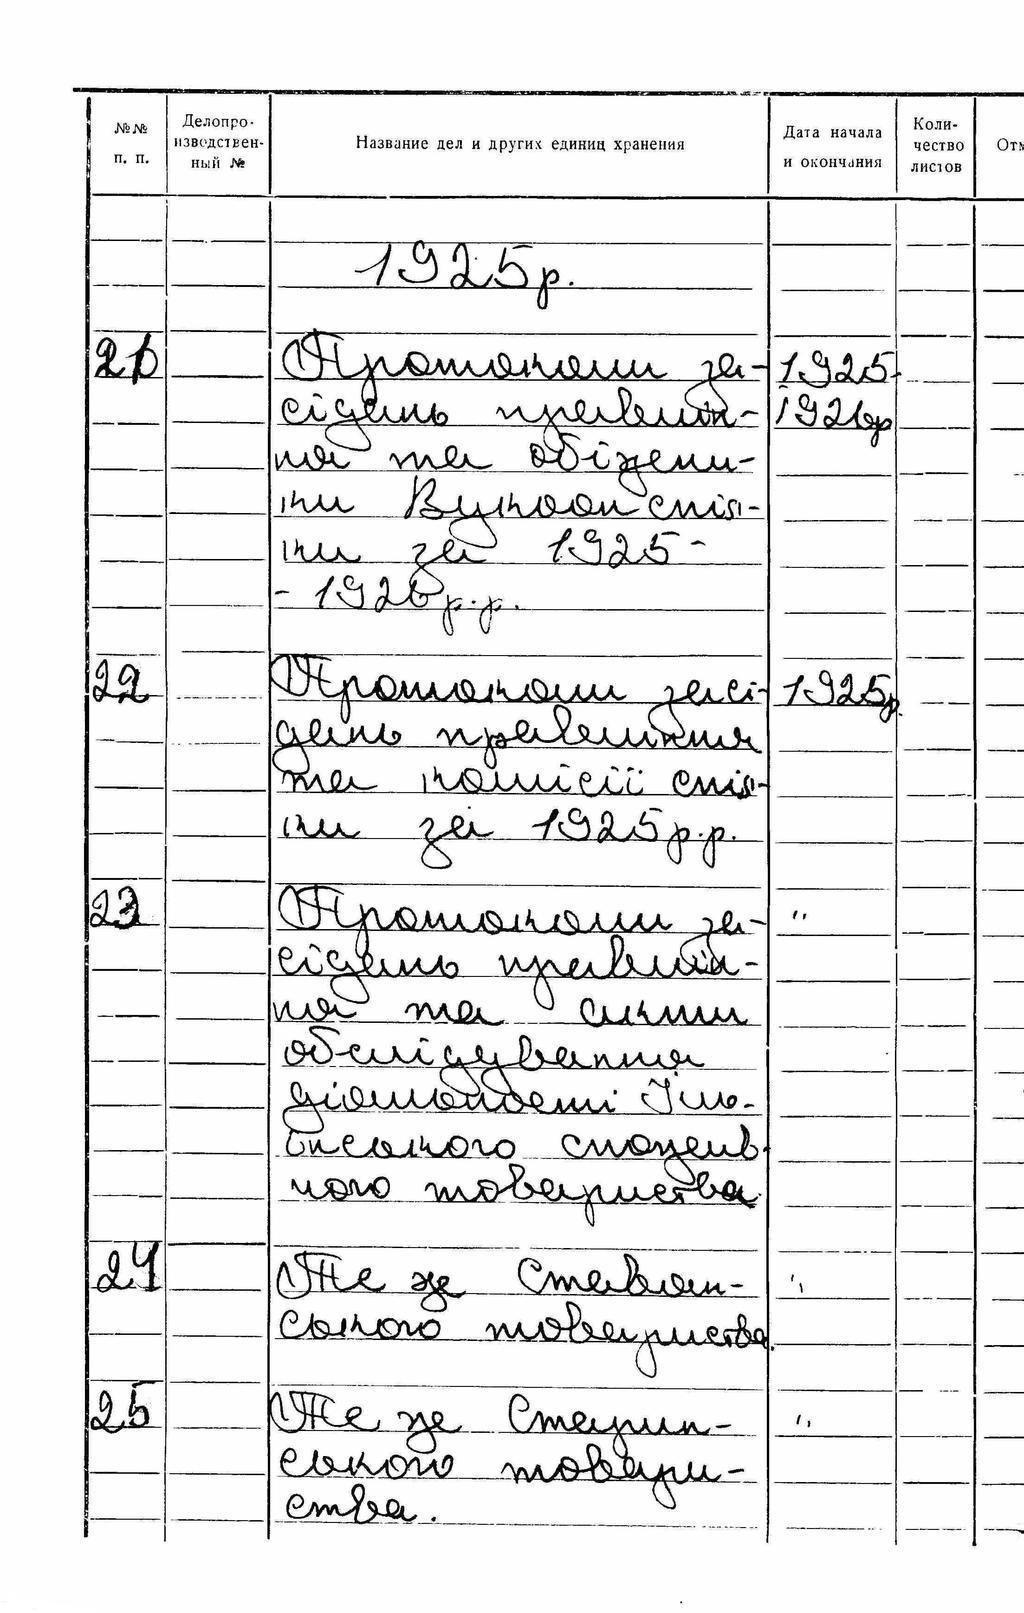 №№ п. п.
Делопро-
изводствен-
ный №
Название дел и других единиц хранения
Дата начала
и окончания
Коли-
чество
листов
Отм
1925р.
21 Протоколи за- 1925-
сідань правлін- 1926р
ня та обіжни-
ки Вукоопспіл-
ки за 1925-
- 1926 р.р.
22 Протоколи засі- 1925р.
дань правління
та комісії спіл-
ки за 1925р.р.
23 Протоколи за- "
сідань правлін-
ня та акти
обслідування
діяльності
ського спожив-
чого товариства
24 Те же "
ського товариства.
25 Те же Старин- "
ського товари-
ства.